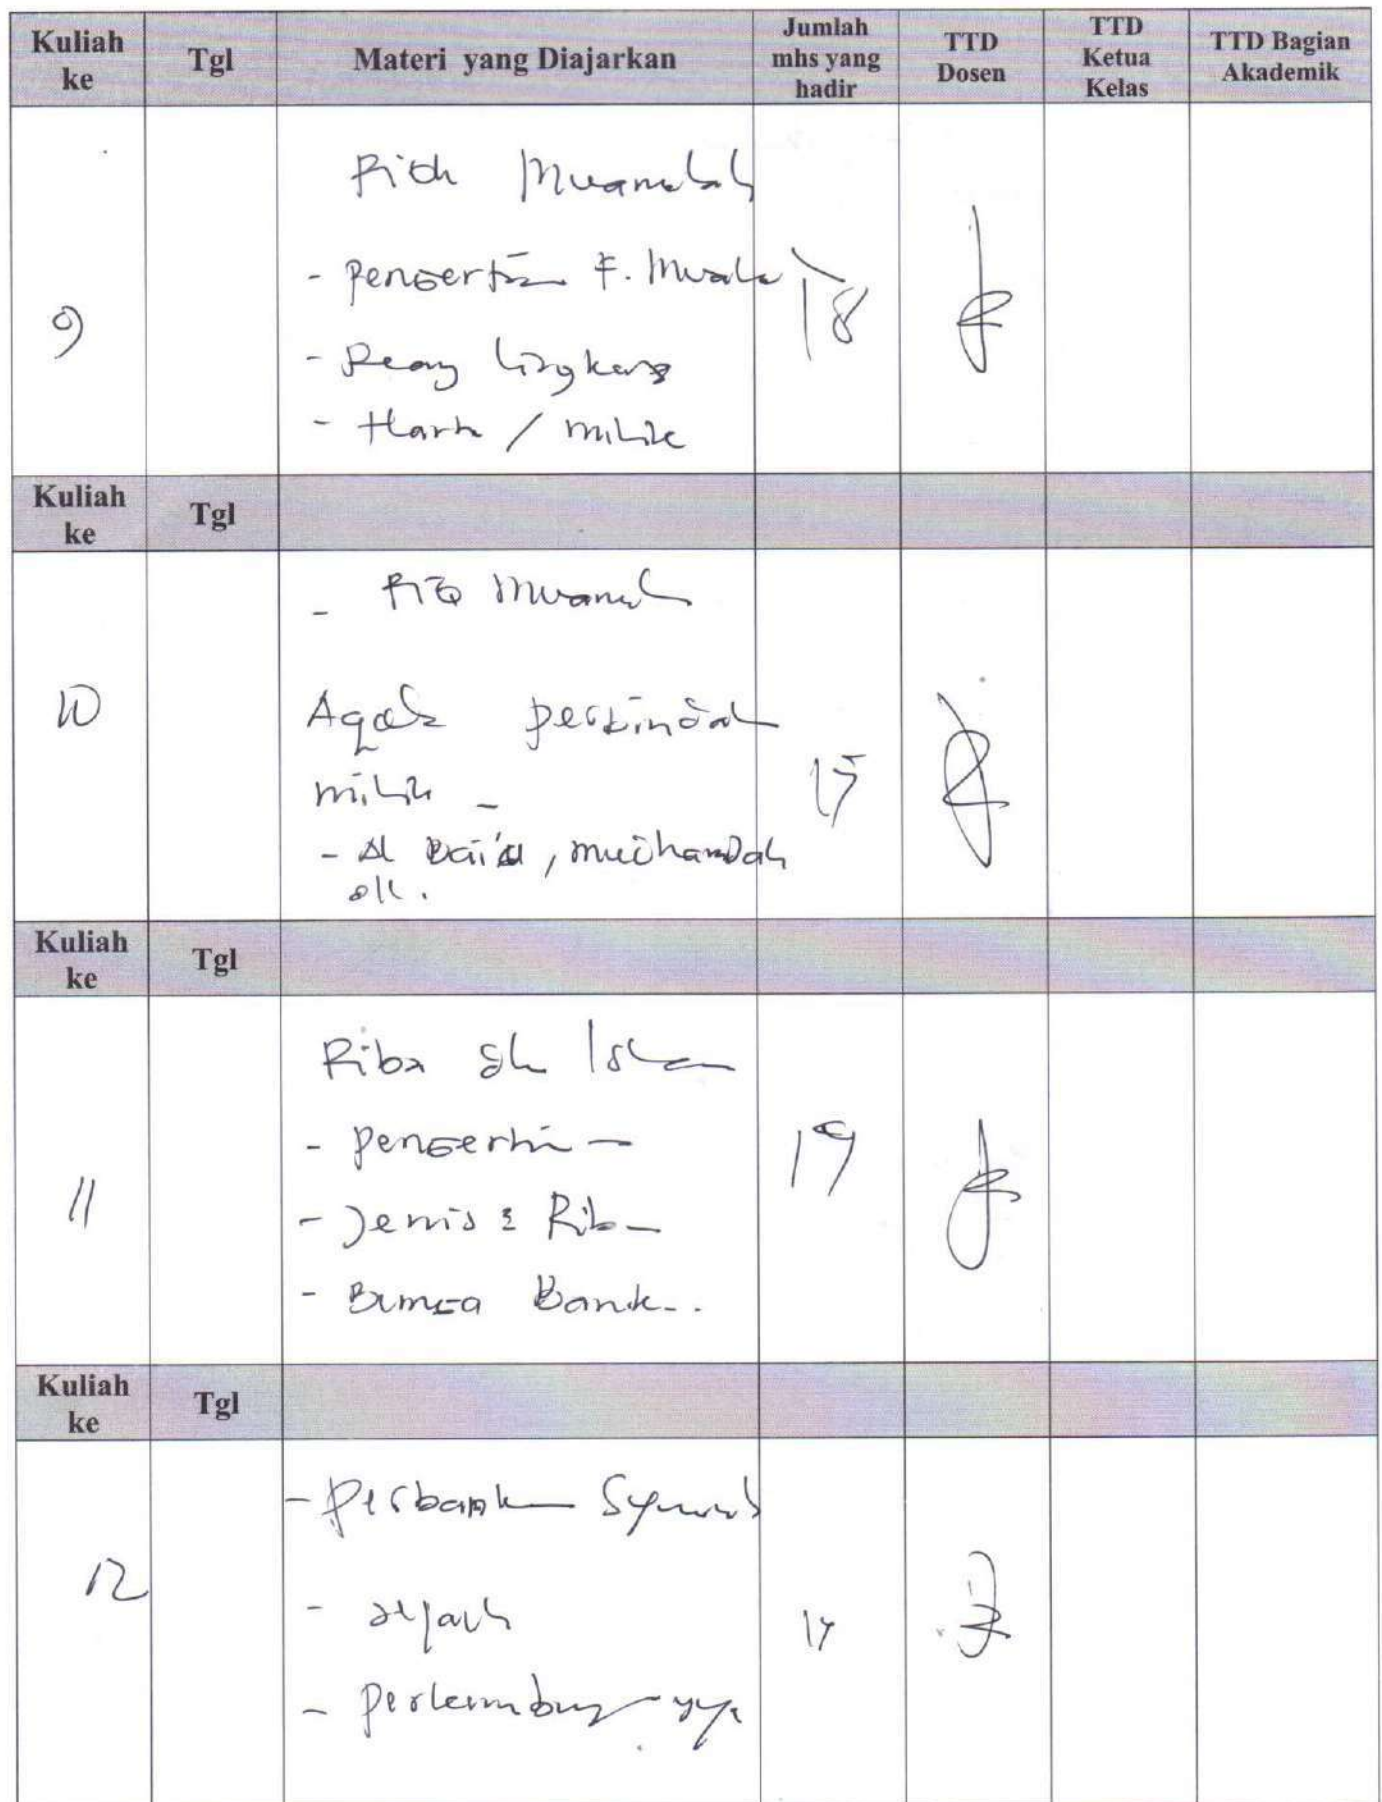 Kuliah ke Tgl Materi yang Diajarkan Jumlah mhs yang hadir TTD Dosen TTD Ketua Kelas TTD Bagian Akademik
Muamalah
- Pengertian F.
9 18
- lingkang
- Harta / milik
Kuliah ke Tgl
-
10 Aqad perpindah
milik - 15
- Al Bai'a, mudharabah
dll.
Kuliah ke Tgl
Riba dlm Islam
- Pengertian 19
11 - Jenis2 Riba
- Bunga Bank..
Kuliah ke Tgl
- Perbankan Syariah
12 - sejarah
- Perkembangannya